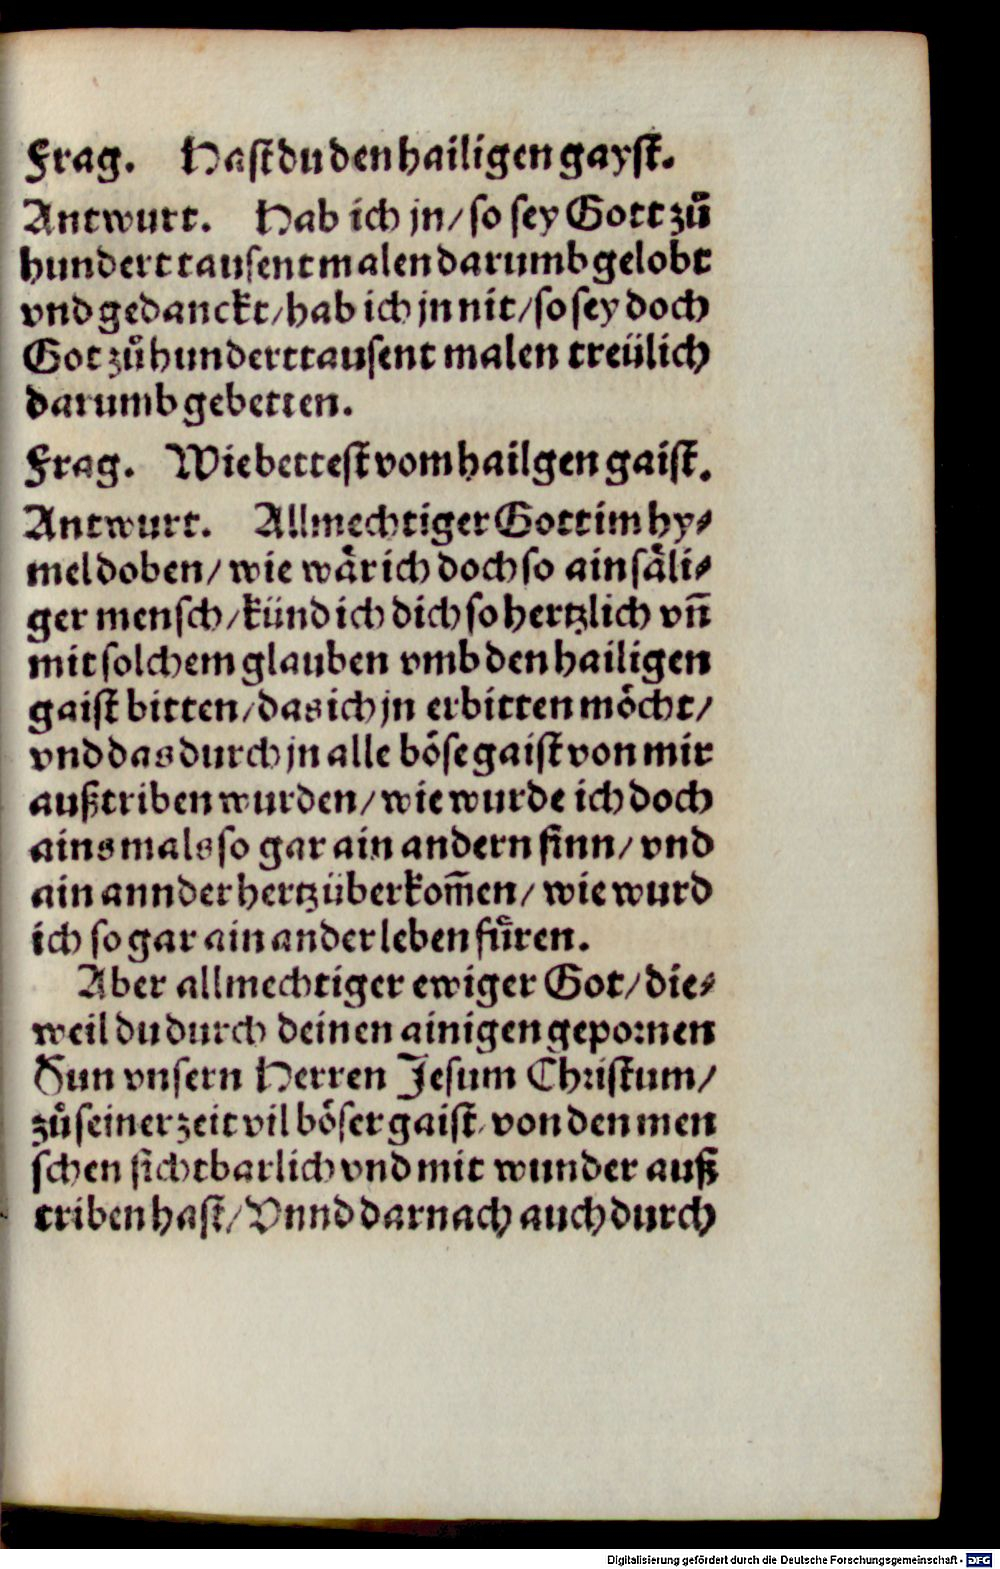 Frag. Hast du den hailigen gayst.
Antwurt. Hab ich jn/ so sey Gott zů
hundert tausent malen darumb gelobt
vnd gedanckt/ hab ich jn nit/ so sey doch
Got zů hunderttausent malen treülich
darumb gebetten.
Frag. Wie bettest vom hailgen gaist.
Antwurt. Allmechtiger Gott im hy⸗
mel doben/ wie wår ich doch so ain såli⸗
ger mensch/ künd ich dich so hertzlich vñ
mit solchem glauben vmb den hailigen
gaist bitten/ das ich jn erbitten mőcht/
vnd das durch jn alle bőse gaist von mir
außtriben wurden/ wie wurde ich doch
ains mals so gar ain andern sinn/ vnd
ain annder hertz überkom̃en/ wie wurd
ich so gar ain ander leben fůren.
Aber allmechtiger ewiger Got/ die⸗
weil du durch deinen ainigen gepornen
Sun vnsern Herren Jesum Christum/
zů seiner zeit vil bőser gaist/ von den men
schen sichtbarlich vnd mit wunder auß
triben hast/ Vnnd darnach auch durch
Digitalisierung gefördert durch die Deutsche Forschungsgemeinschaft - DFG